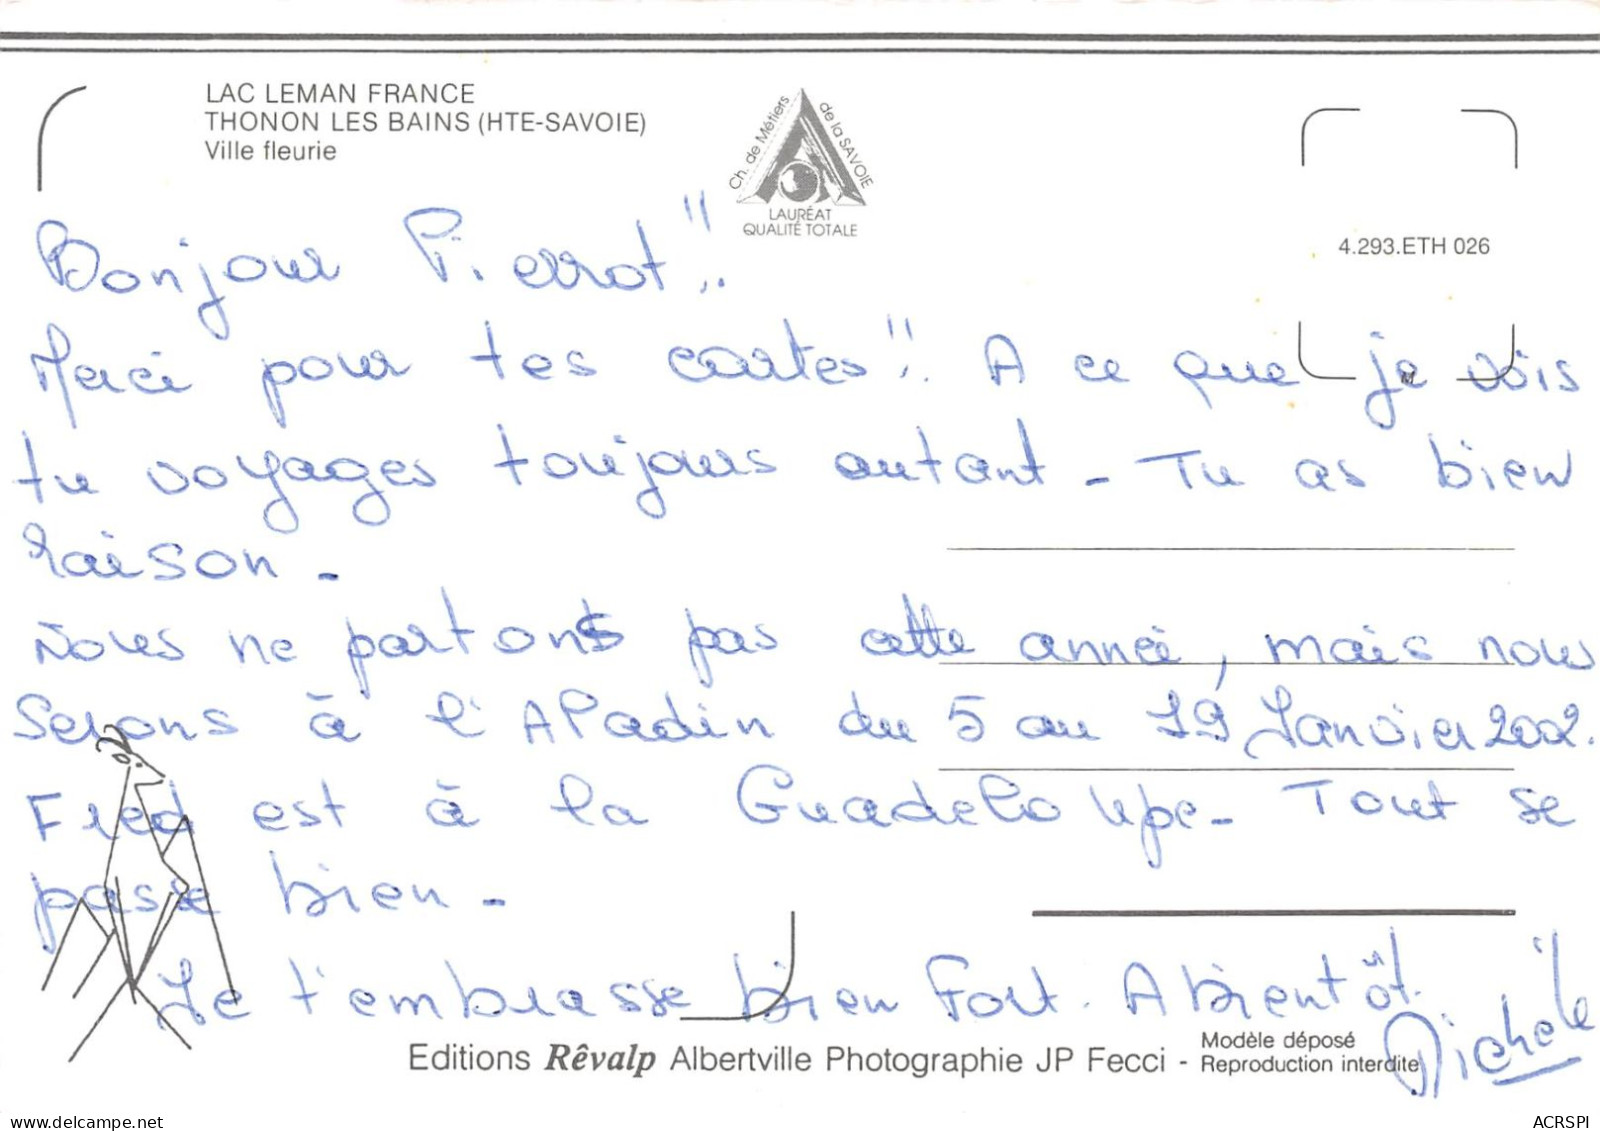 LAC LEMAN FRANCE
THONON LES BAINS (HTE-SAVOIE)
Ville fleurie
Ch. de Métiers de la SAVOIE
LAURÉAT
QUALITÉ TOTALE
4.293.ETH 026
Bonjour Pierrot !!
Merci pour tes cartes !! A ce que je vois
tu voyages toujours autant - Tu as bien
raison -
Nous ne partons pas cette année, mais nous
serons à l'Aladin du 5 au 19 Janvier 2002.
Fred est à la Guadeloupe - Tout se
passe bien -
Je t'embrasse bien Fort. A bientôt.
Michèle
Editions Rêvalp Albertville Photographie JP Fecci - Modèle déposé
Reproduction interdite
ACRSPI